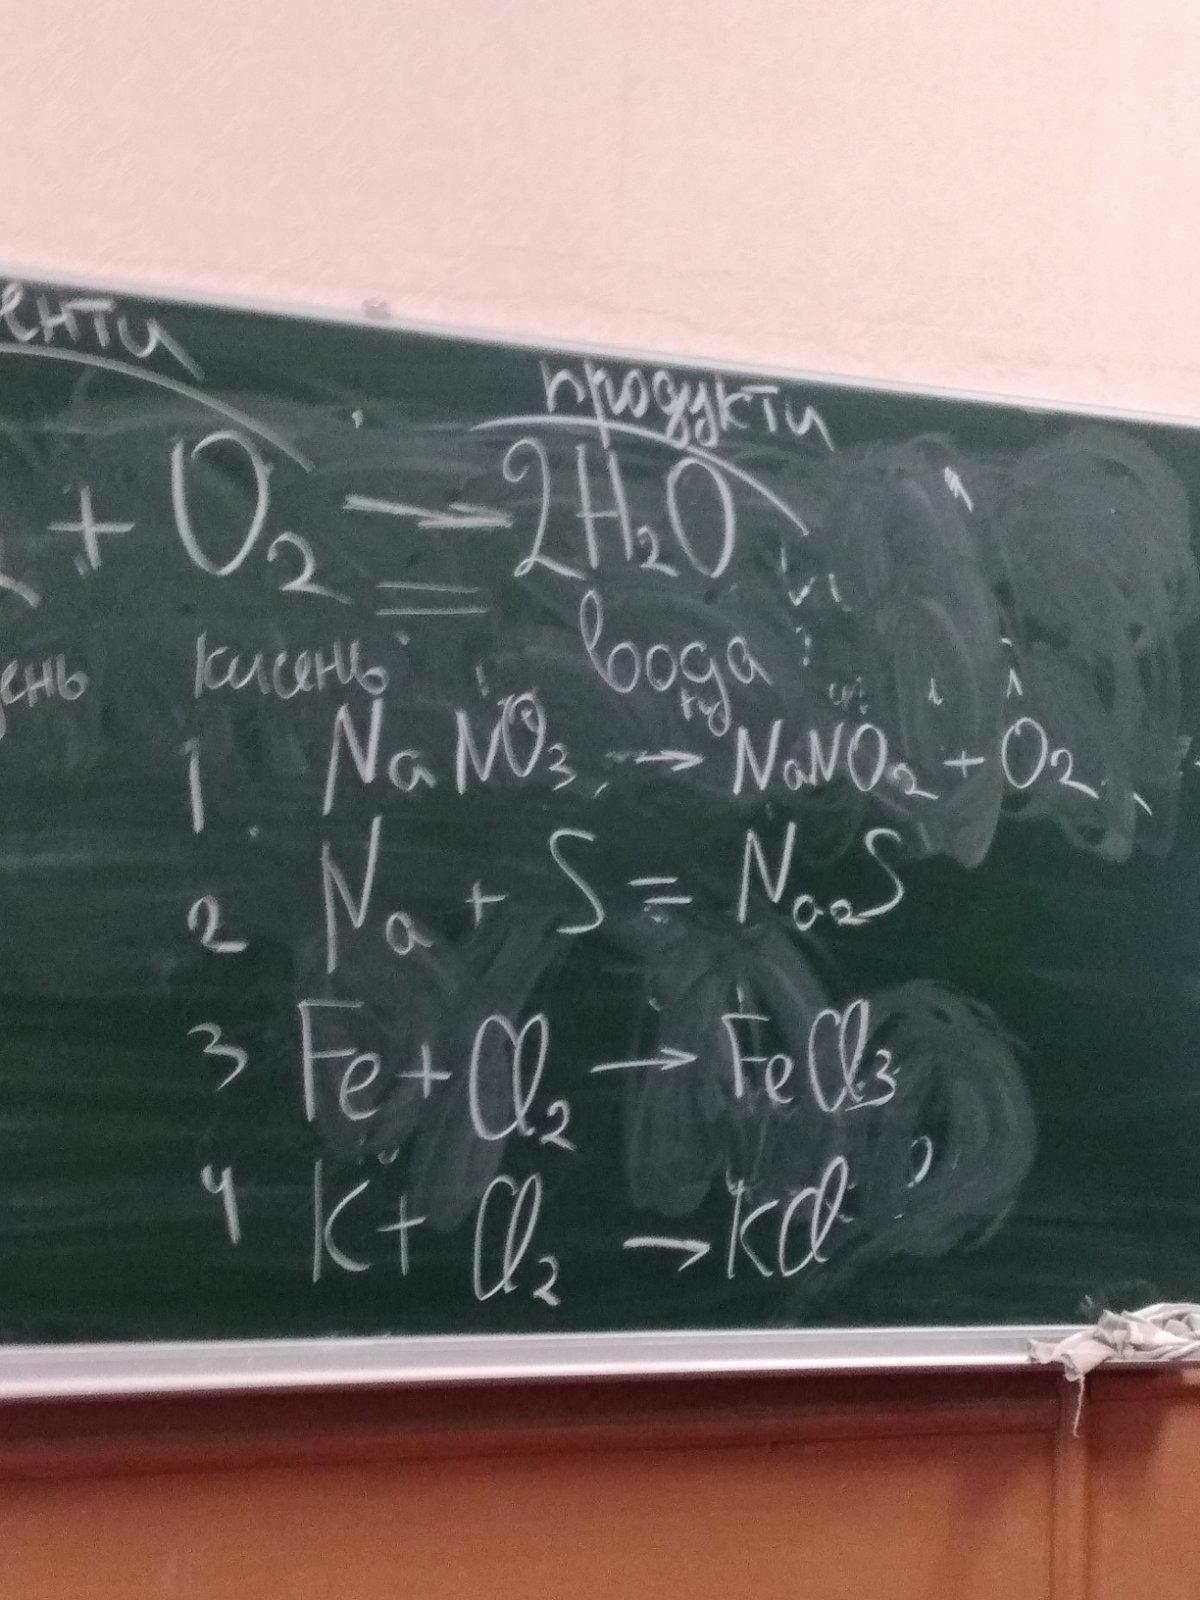 енти
продукти
+ O₂ → 2H₂O
=
ень кисень вода
1 NaNO₃ → NaNO₂ + O₂
2 Na + S = Na₂S
3 Fe + Cl₂ → FeCl₃
4 K + Cl₂ → KCl